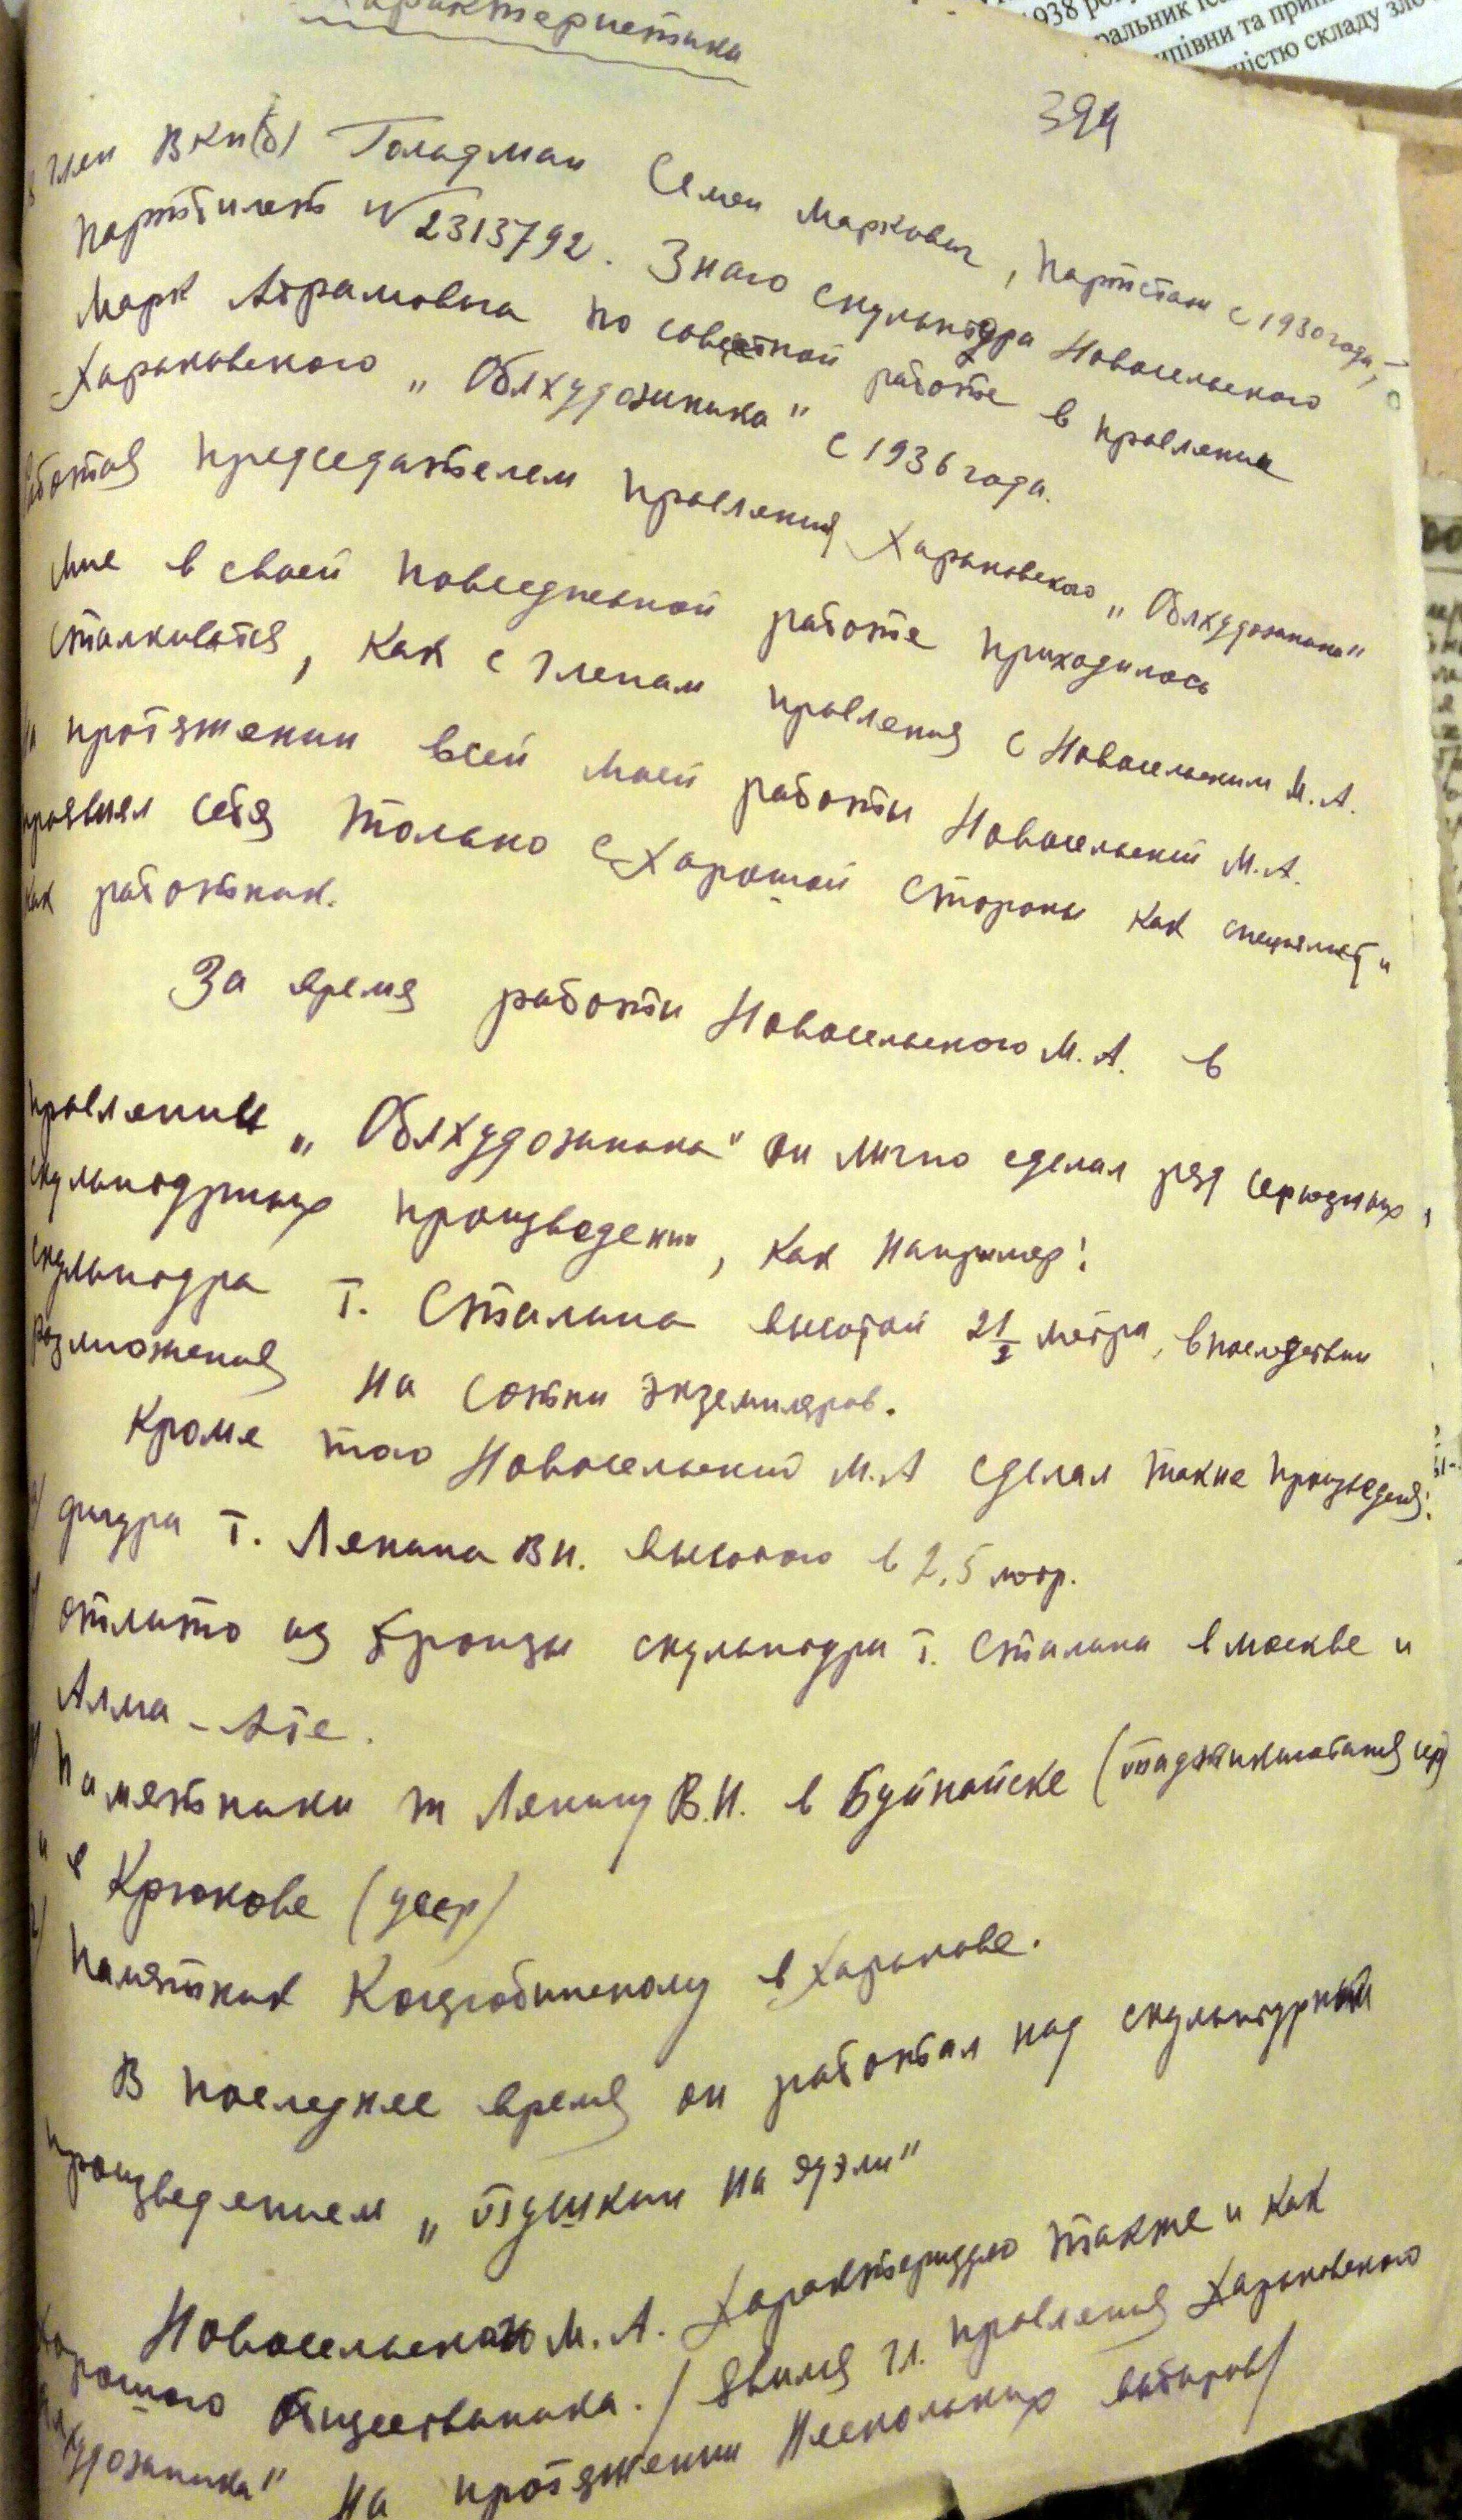 Характеристика
394
1938 ро
Я член ВКП(б) Гольдман Семен Маркович, партстаж с 1930 года,
партбилет № 2313792. Знаю скульптора Новосельского
Марк Абрамовича по совестной работе в правлении
Харьковского „Облхудожника" с 1936 года.
Работая председателем правления Харьковского „Облхудожника"
мне в своей повседневной работе приходилось
сталкиватся, как с членам правления с Новосельским М.А.
На протяжении всей моей работы Новосельский М.А.
проявлял себя только с хорошей стороны как специалист и
как работник.
За время работы Новосельского М.А. в
правлении „Облхудожника" он лично сделал ряд серьозных
скульптурных произведении, как например:
скульптура т. Сталина высотой 2 1/2 метра, впоследствии
размноженая на сотни экземпляров.
Кроме того Новосельский М.А сделал такие произведения:
фигура т. Ленина В И. высотою в 2,5 метр.
отлито из бронзы скульптуры т. Сталина в Москве и
Алма-Ате.
Памятники т Ленину В.И. в Буйнайске (Таджикистаная сср)
и в Крюкове (усср)
Памятник Коцюбинскому в Харькове.
В последнее время он работал над скульптурным
произведением „Пушкин на дуэли"
Новосельского М.А. характеризую также и как
хорошого общественника. / являлся чл. правления Харьковского
Облхудожника" на протяжении нескольких выборов/